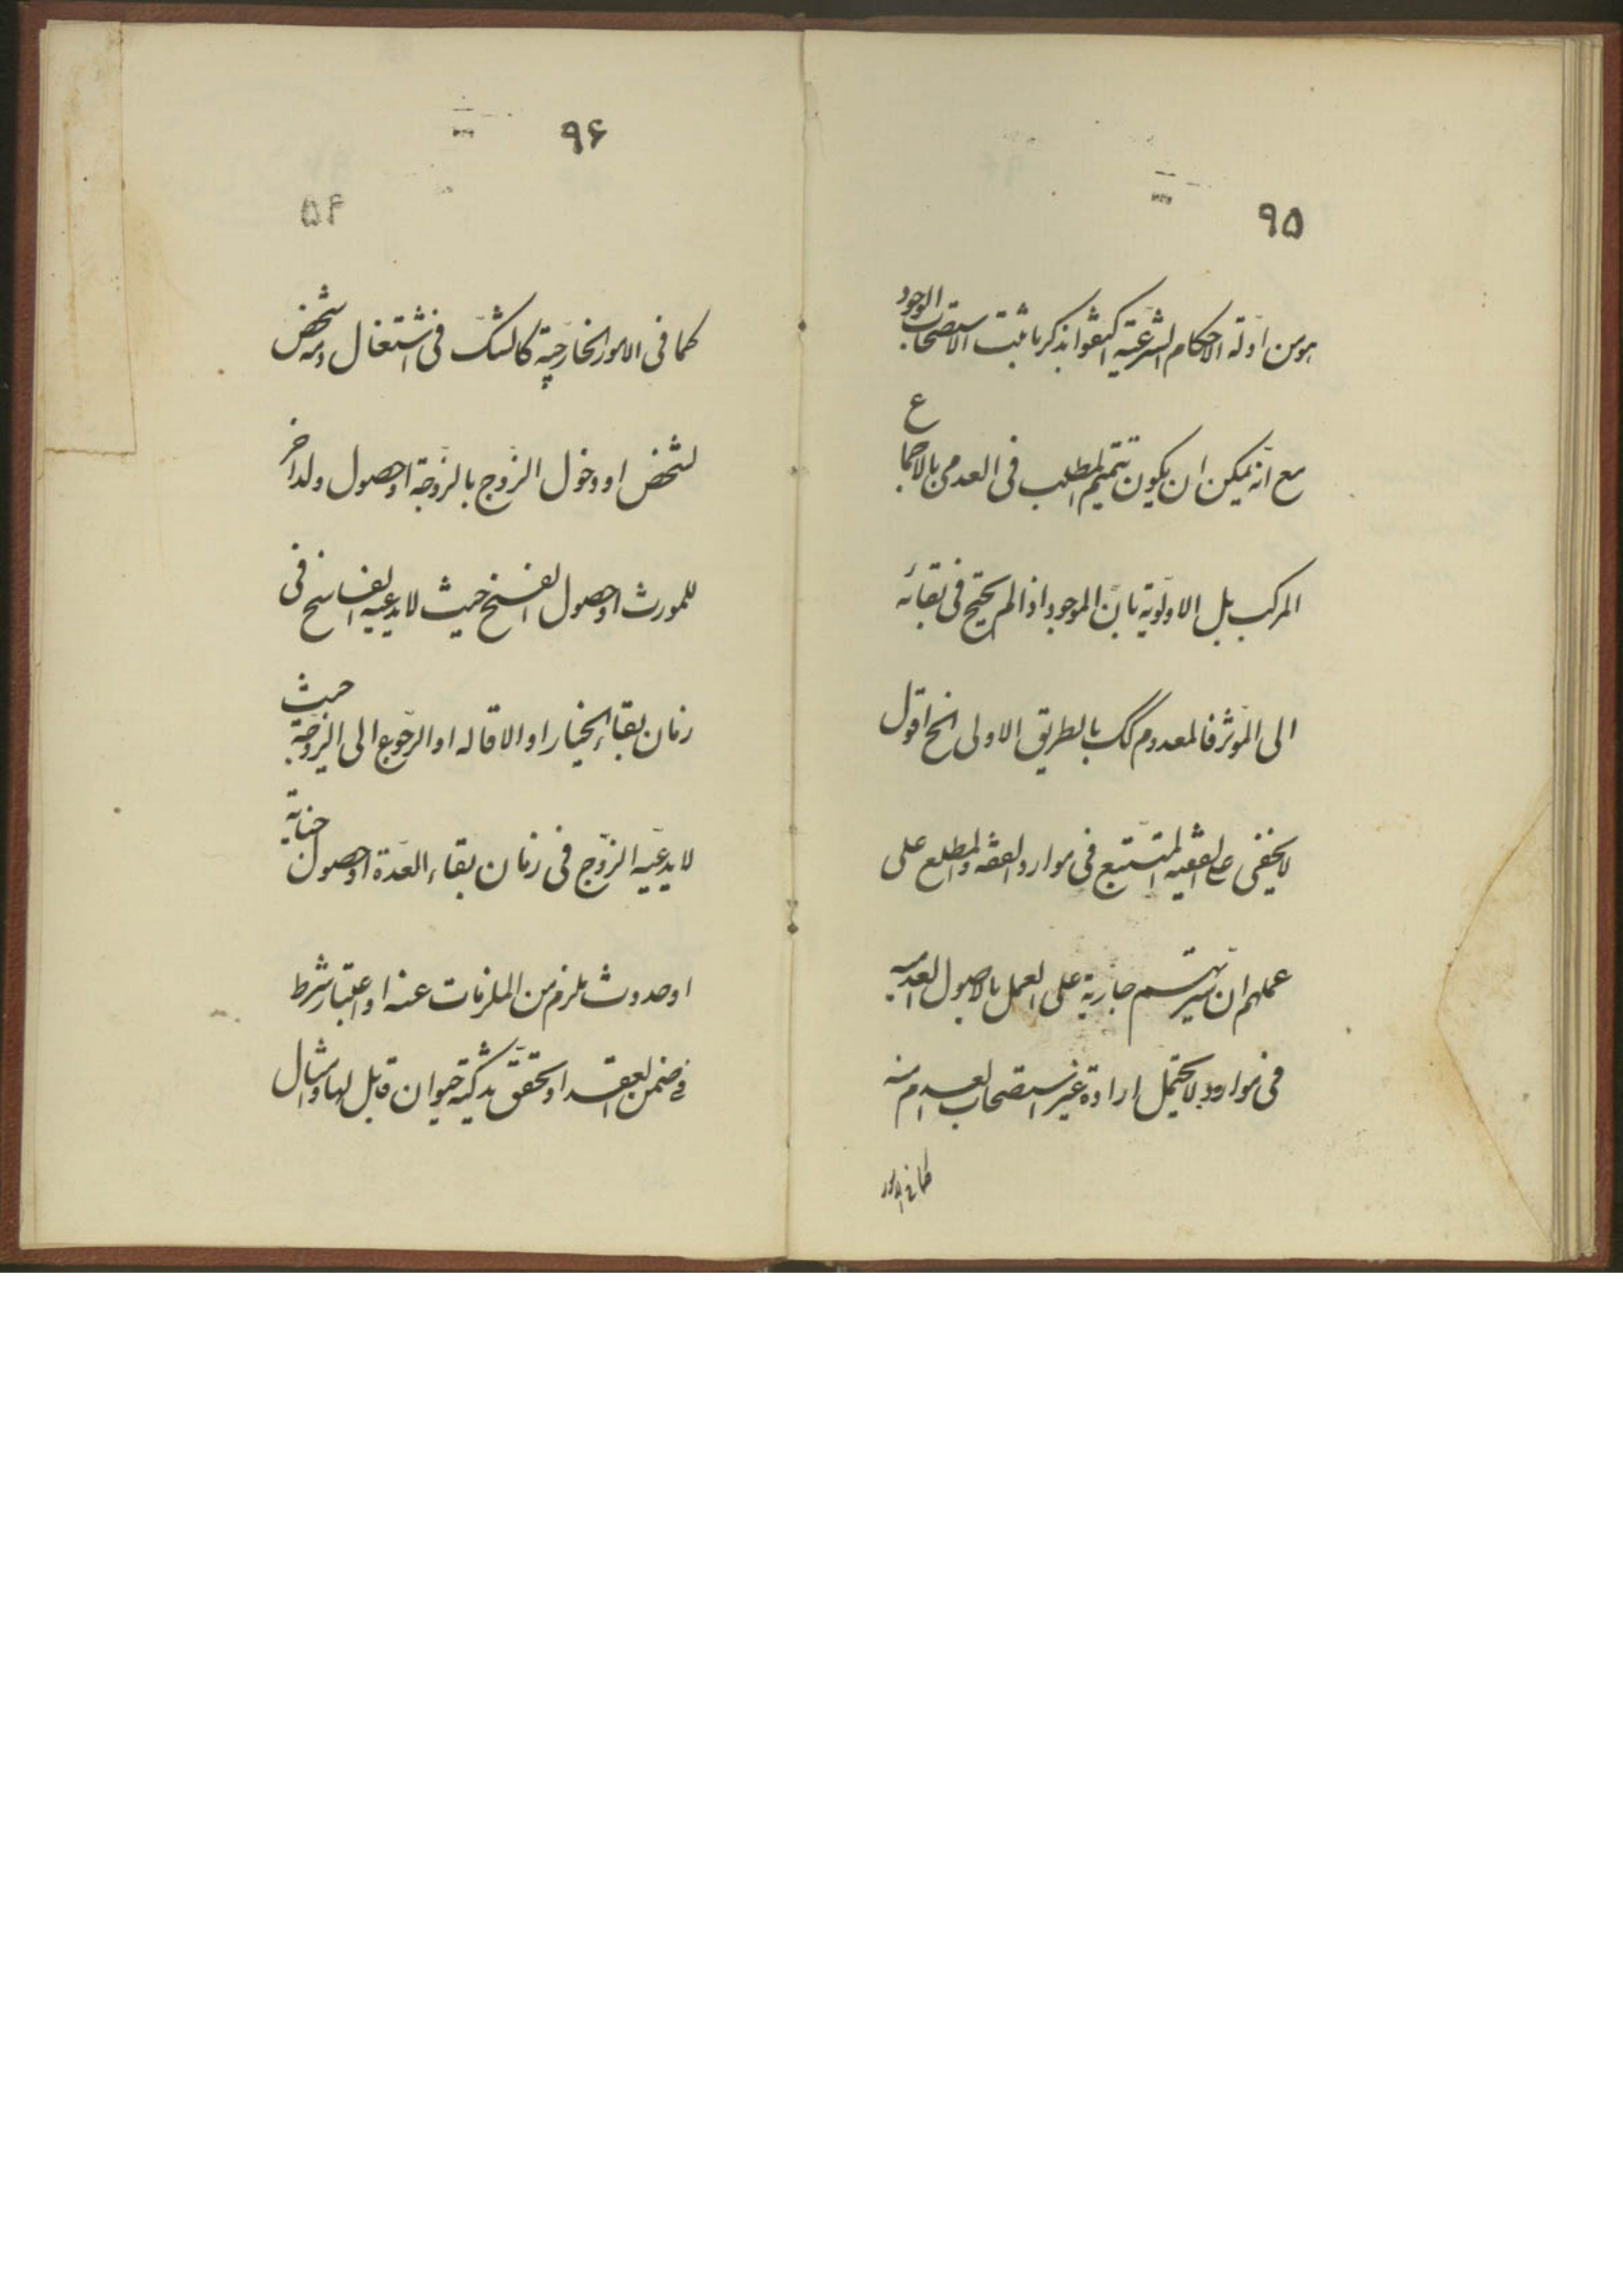 ۹۵
هو من ادلة الاحكام الشرعية اكتفوا بذكر ما يثبت الاستصحاب الوجود
مع انه يمكن ان يكون تتميم المطلب فى العدمى بالاجماع
المركب بل الاولوية بان الموجود اذا لم يحتج فى بقائه
الى المؤثر فالمعدوم كك بالطريق الاولى الخ اقول
لا يخفى على الفقيه المتتبع فى موارد الفقه والمطلع على
عملهم ان سيرتهم جارية على العمل بالاصول العدمية
فى موارد لا يحتمل ارادة غير استصحاب العدم منه
كما فى الامور
۹۶
۵۴
كما فى الامور الخارجية كالشك فى اشتغال ذمة شخص
لشخص او دخول الزوج بالزوجة او حصول ولد اخر
للمورث او حصول الفسخ حيث لا يدعيه الفاسخ فى
زمان بقاء الخيار او الاقاله او الرجوع الى الزوجة حيث
لا يدعيه الزوج فى زمان بقاء العدة او حصول جناية
او حدوث ملزم من الملزمات عنه او اعتبار شرط
فى ضمن العقد او تحقق تذكية حيوان قابل لها وامثال